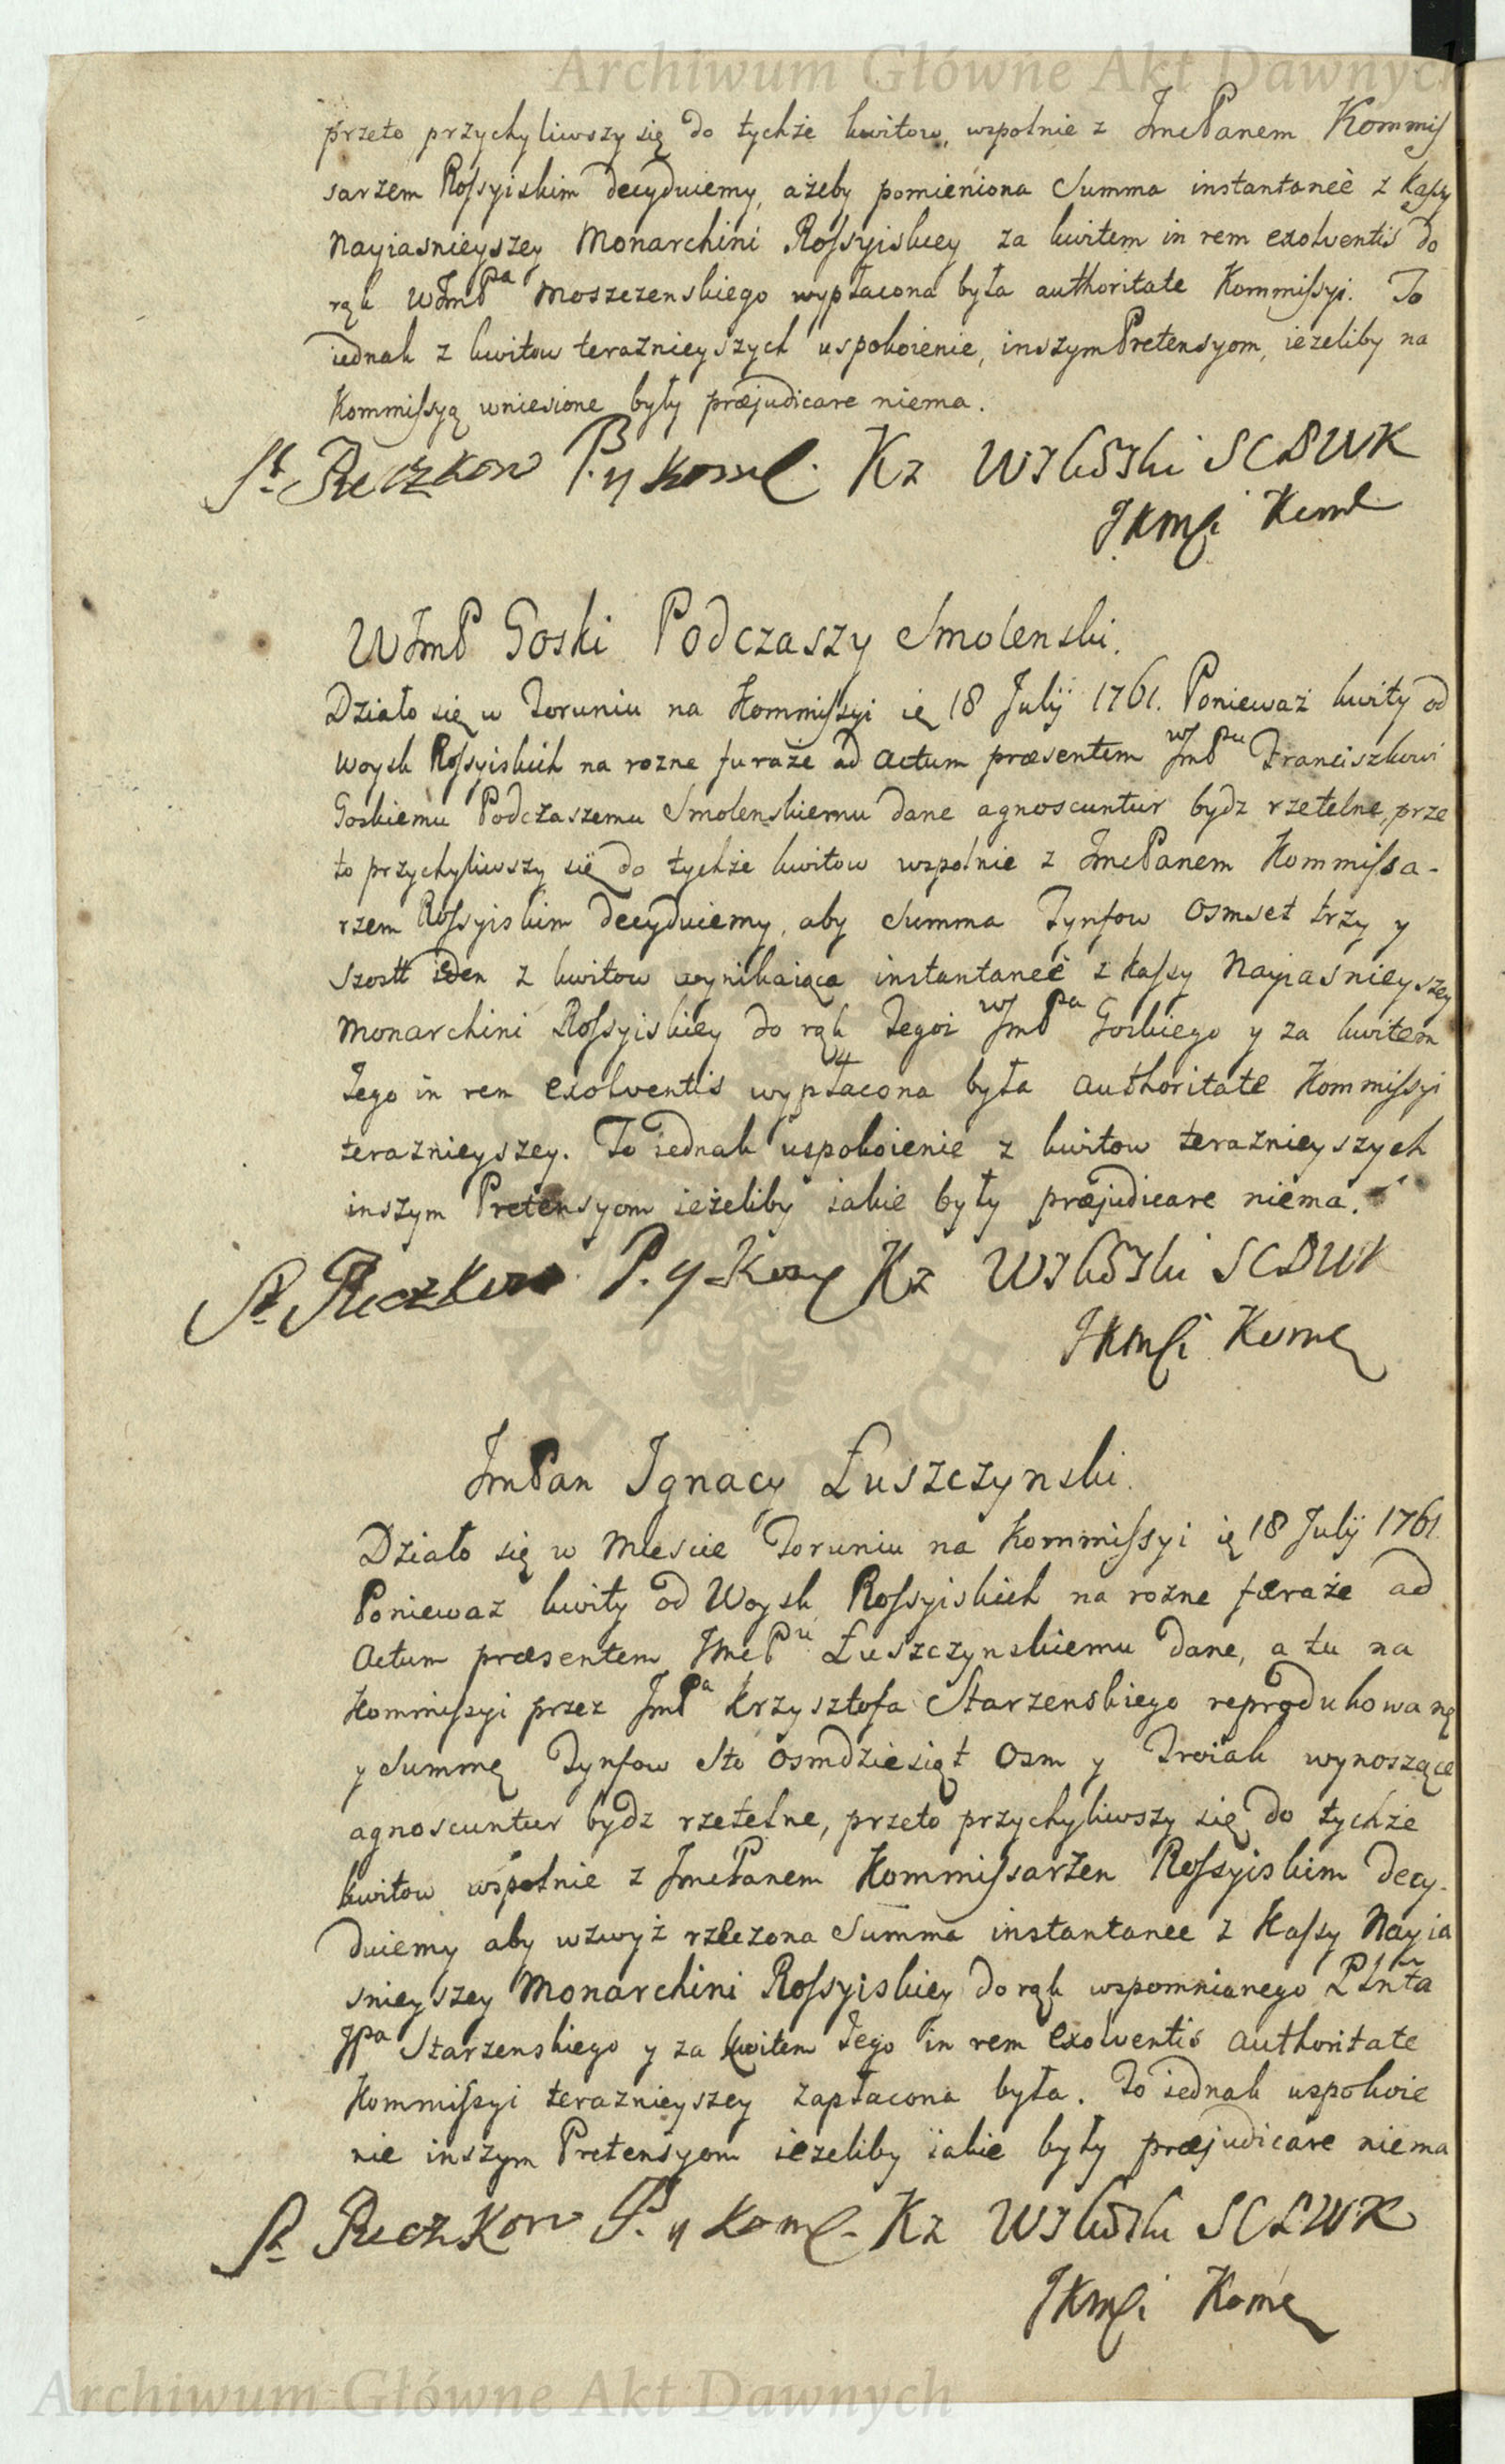 Archiwum Główne Akt Dawnych
przeto przychyliwszy się do tychże kwitow, wspolnie z JmcPanem Kommis
sarzem Rossyiskim decyduiemy, ażeby pomieniona Summa instantaneè z Kassy
Nayiasnieyszey Monarchini Rossyiskiey za kwitem in rem exolventis do
rąk WJmPa Moszczenskiego wypłacona była authoritate Kommissyi. To
iednak z kwitow teraznieyszych uspokoienie, inszym Pretensyom, iezeliby na
Kommissyą wniesione były præjudicare niema.
St. Reczkow P. y Kome. Kz SCDWK
JKMsi Komc
WJmP Goski Podczaszy Smolenski.
Działo się w Toruniu na Kommissyi ię 18 Julÿ 1761. Ponieważ kwity od
Woysk Rossyiskich na rozne furaże ad Actum præsentem WJmPu Franciszkowi
Goskiemu Podczaszemu Smolenskiemu dane agnoscuntur bydz rzetelne, prze
to przychyliwszy się do tychże kwitow wspolnie z JmcPanem Kommissa-
rzem Rossyiskim decyduiemy, aby Summa Tynfow Osmset trzy y
Szostt ieden z kwitow wynikaiąca instantaneè z Kassy Nayiasnieyszey
Monarchini Rossyiskiey do rąk Tegoż WJmPa Goskiego y za kwitem
Jego in rem exolventis wypłacona była authoritate Kommissyi
teraznieyszey. To iednak uspokoienie z kwitow teraznieyszych
inszym Pretensyom ieżeliby iakie były præjudicare niema.
St. Reczkow P. y Kome Kz SCDWK
JKMsi Kome
JmPan Ignacy Łuszczynski.
Działo się w Miescie Toruniu na Kommissyi ię 18 Julÿ 1761
Poniewaz kwity od Woysk Rossyiskich na rozne furaże ad
Actum præsentem JmcPu Łuszczynskiemu dane, a tu na
Kommissyi przez JmPa Krzysztofa Starzenskiego reprodukowane
y Summę Tynfow Sto Osmdziesiąt Osm y Troiak wynoszące
agnoscuntur bydz rzetelne, przeto przychyliwszy się do tychże
kwitow wspolnie z JmcPanem Kommissarzem Rossyiskim decy-
duiemy aby wzwyż rzeczona Summa instantanee z Kassy Nayia
snieyszey Monarchini Rossyiskiey do rąk wspomnianego Plnta
JPa Starzenskiego y za kwitem Jego in rem exolventis authoritate
Kommissyi teraznieyszey zapłacona była. To iednak uspokoie
nie inszym Pretensyom iezeliby iakie były præjudicare niema
St. Reczkow P. y Kome. Kz SCDWK
JKMsi Kome
Archiwum Główne Akt Dawnych